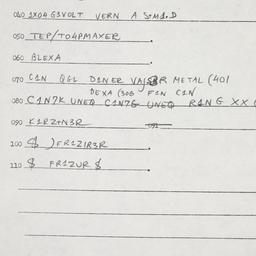 040 1X04 G3VOLT VERN A
050 TEP/TO4PMAXER
060 BLEXA
070 C1N DINER METAL (401
DEXA (306 F1N C1N
080 C1N7K UNEQ C1N7G UNEQ R1NG XX
090 K1RZTN3R
100 $ )FR1Z1R3R
110 $ FR1ZUR $